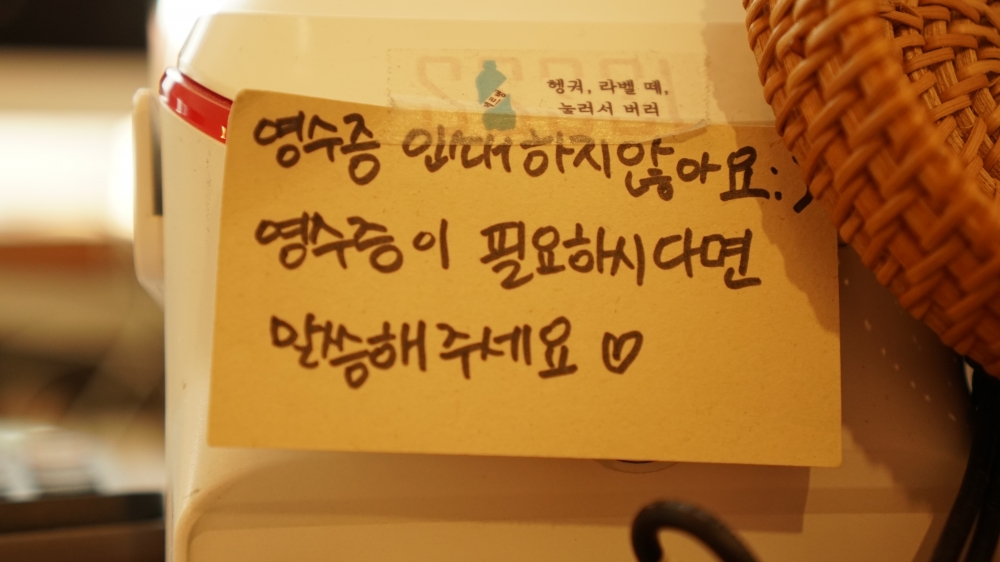 헹궈, 라벨 떼,
눌러서 버려
영수증 인쇄하지않아요:)
영수증이 필요하시다면
말씀해주세요 ♡